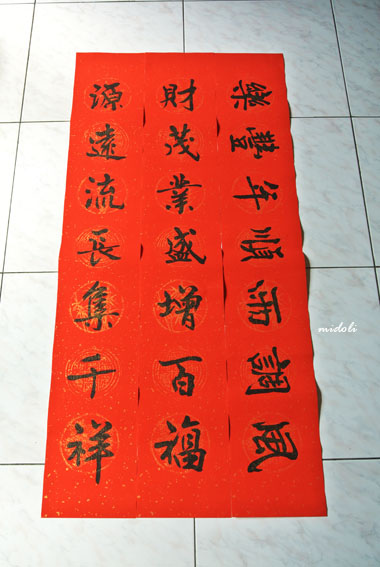 風調雨順年豐樂
財茂業盛增百福
源遠流長集千祥
midoli